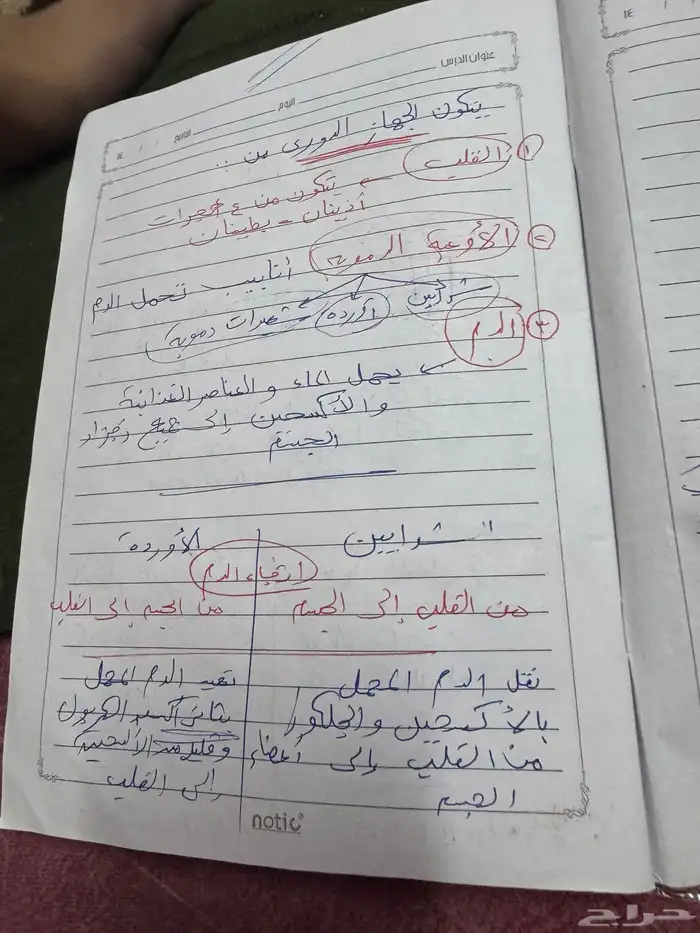 عنوان الدرس
اليوم
التاريخ / / ١٤
يتكون الجهاز الدوري من ..
١ القلب ← يتكون من ٤ حجرات
أذينان - بطينان
٢ الأوعية الدموية أنابيب تحمل الدم
شرايين أوردة شعيرات دموية
٣ الدم
يحمل الماء والعناصر الغذائية
والأكسجين إلى جميع أجزاء
الجسم
الشرايين الأوردة
اتجاه الدم
من القلب إلى الجسم من الجسم إلى القلب
نقل الدم المحمل تعيد الدم المحمل
بالأكسجين والجلكوز بثاني أكسيد الكربون
من القلب إلى أعضاء وقليل من الأكسجين
الجسم إلى القلب
notic
حراج
١٤